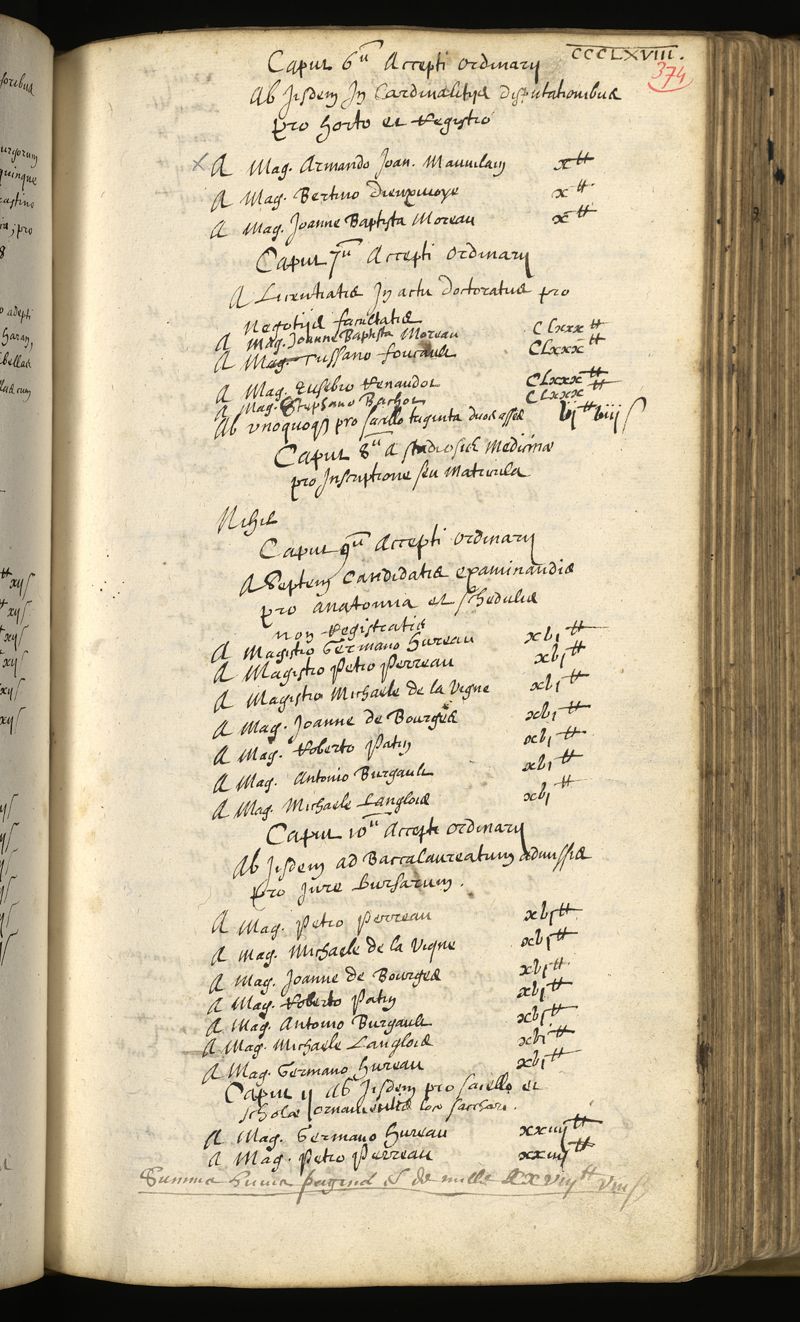 CCCLXVIII.
374
Caput 6ᵘ Accepti ordinarij
Ab Iisdem In Cardinalitiis disputationibus
pro horto et Registro
A Mag. Armando Joan. Mauvilain x ₶
A Mag. Bertino Dieuxivoye x ₶
A Mag. Joanne Baptista Moreau x ₶
Caput 7ᵘ Accepti ordinarij
A Licentiatis In actu doctoratus pro
Negotijs facultatis
A Mag. Joanne Baptista Moreau CLxxx ₶
A Mag. Tussano foucault CLxxx ₶
A Mag. Eusebio Renaudot CLxxx ₶
A Mag. Stephano Bachot CLxxx ₶
Ab unoquoq pro sacello triginta duos asses vj ₶ viij ſ
Caput 8ᵘ A studiosis Medicinæ
pro Inscriptione seu Matricula
Nihil
Caput 9ᵘ Accepti ordinarij
A Septem Candidatis examinandis
pro anatomia et schedulis
non Registratis
A Magistro Germano hureau xvj ₶
A Magistro Petro Perreau xvj ₶
A Magistro Michaele de la Vigne xvj ₶
A Mag. Joanne de Bourges xvj ₶
A Mag. Roberto Patin xvj ₶
A Mag. Antonio Burgault xvj ₶
A Mag. Michaele Langlois xvj ₶
Caput 10ᵘ Accepti ordinarij
Ab Iisdem ad Baccalaureatum admissis
pro Jure Bursarum.
A Mag. Petro Perreau xvj ₶
A Mag. Michaele de la Vigne xvj ₶
A Mag. Joanne de Bourges xvj ₶
A Mag. Roberto Patin xvj ₶
A Mag. Antonio Burgault xvj ₶
A Mag. Michaele Langlois xvj ₶
A Mag. Germano hureau xvj ₶
Caput 11 Ab Iisdem pro sacello et
scholæ ornamentis loco sacchari.
A Mag. Germano hureau xxiiij ₶
A Mag. Petro Perreau xxiiij ₶
Summa huius paginæ de mille viij ₶ viij ſ